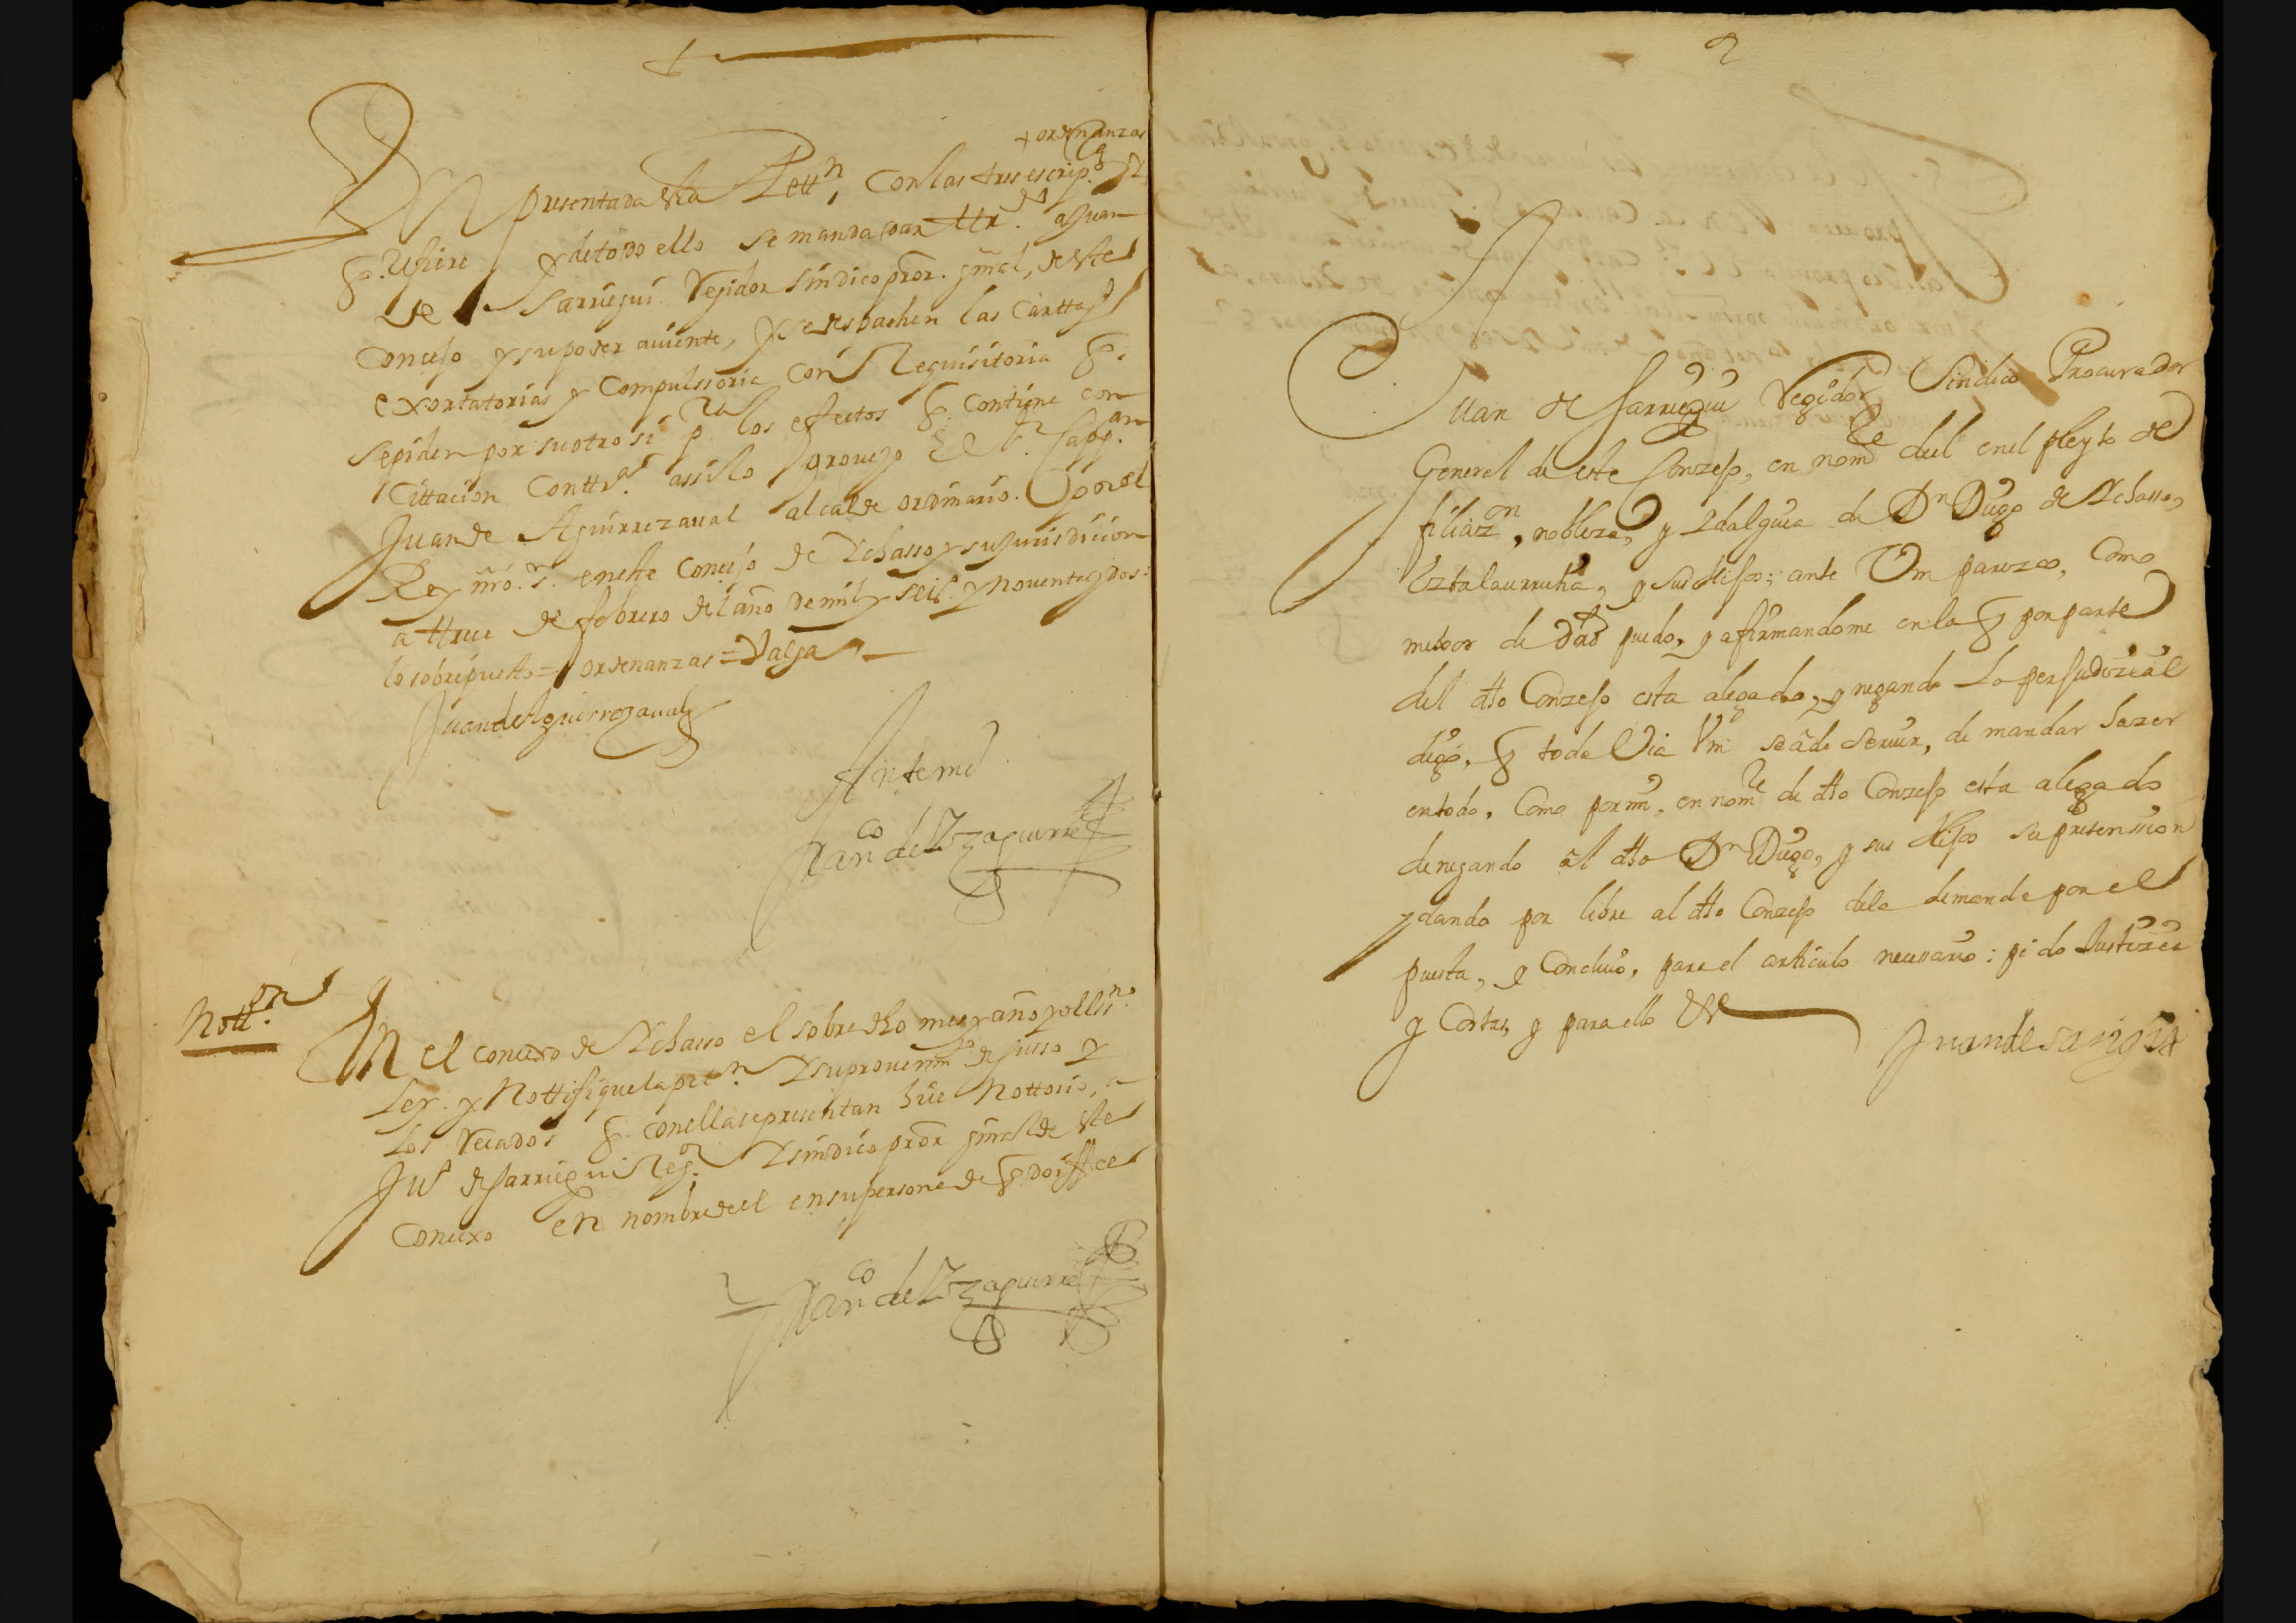 + ordenanzas
Presentada esta Pettn, Con las tres escrips. y
q. Refiere y de todo ello se manda dar ttrdo. a Juan
de Sarriegui Regidor sindico pror. gnral, de este
Concejo y su poder aviente, y se despachen las Carttas
exortatorias y Compulssoria con Requisitoria q.
se piden por su otro si pra los effectos q. contiene con
Cittacion Conttra. assi lo proveyo el sr. Cappan
Juan de Aguirrezaual alcalde ordinario. por el
Rey nro. sr. en este Concejo de Ychasso y su jurisdicion
a ttrece de febrero del año de mil y seis. y noventa y dos =
lo sobrepuesto = ordenanzas = Valga
Juan de Aguirrezaual
Ante mi
Franco de Yzaguirre
Nottn.
En el concexo de Ychasso el sobre dho mes y año yo el ssno.
Ley. y Nottifique la petn. Y su proveimto de susso y
los recados q. con ella se presentan hize Nottorio, a
Jun de Sarriegui Regor. Y sindico pror gnral de este
Concexo en nombre de el en su persona de q. doi ffee
Franco de Yzaguirre
2
Juan de Sarriegui Regidor Sindico Procurador
General de este Conzejo, en nomre del en el pleyto de
filiazon, nobleza, y Ydalguia de Dn Diego de Ychasso,
Oztalaurrutia, y sus Hijos; ante Vm parezco, Como
mejor de dro puedo, y afirmandome en lo q por parte
del dho Conzejo esta alegado, y negando lo perjudizial
digo, q toda Via Vm se a de servir, de mandar hazer
en todo, Como por mi, en nomre de dho Conzejo esta alegado
denegando al dho Dn Diego, y sus Hijos su pretenssion
y dando por libre al dho Conzejo de la demanda por el
puesta, y Concluio, para el articulo necessario: pido Justizia
y Costas, y para ello &
Juan de sarigui